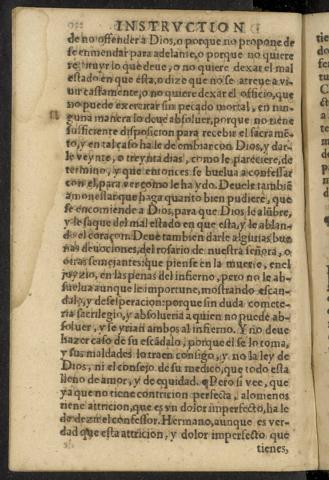 INSTRVCTION
de no offender à Dios, o porque no propone de
se enmendar para adelante, o porque no quiere
restituyr lo que deue, o no quiere dexar el mal
estado en que esta, o dize que no se atreue a vi-
uir castamente, o no quiere dexar el officio, que
no puede exercitar sin pecado mortal, en nin-
guna manera lo deue absoluer, porque no tiene
sufficiente disposicion para recebir el sacramē-
to, y en tal caso ha le de embiar con Dios, y dar-
le veynte, o treynta dias, como le pareciere, de
termino, y que entonces se buelua a confessar
con el, para ver como le ha ydo. Deuele tambiē
amonestar que haga quanto bien pudiere, que
se encomiende a Dios, para que Dios le alūbre,
y le saque del mal estado en que esta, y le ablan-
de el coraçon. Deue tambien darle algunas bue
nas deuociones, del rosario de nuestra señora, o
otras semejantes: que piense en la muerte, en el
juyzio, en las penas del infierno, pero no le ab-
suelua aunque le importune, mostrando escan-
dalo, y desesperacion: porque sin duda comete-
ria sacrilegio, y absolueria a quien no puede ab-
soluer, y se yrian ambos al infierno. Y no deue
hazer caso de su escādalo, porque él se lo toma,
y sus maldades lo traen consigo, y no la ley de
Dios, ni el consejo de su medico, que todo esta
lleno de amor, y de equidad. Pero si vee, que
ya que no tiene contricion perfecta, alomenos
tiene attricion, que es vn dolor imperfecto, ha le
de dezir el confessor. Hermano, aunque es ver-
dad que esta attricion, y dolor imperfecto que
tienes,